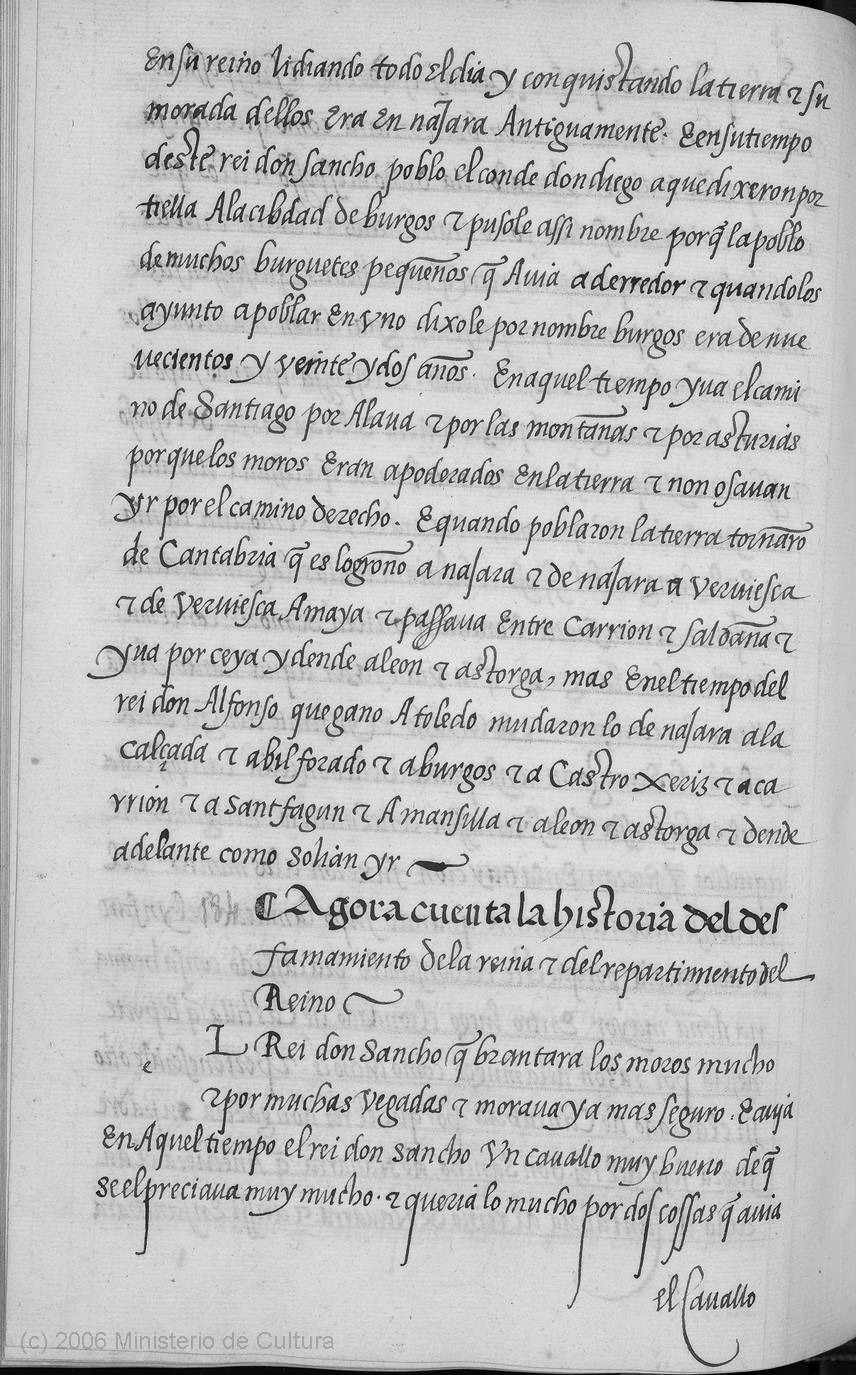 En su reino lidiando todo El dia y conquistando la tierra τ su
morada dellos Era En najara Antiguamente. E en su tiempo
deste rei don sancho poblo el conde don diego aque dixeron por
tiella A la cibdad de burgos τ pusole assi nombre porq̃ la poblo
de muchos burguetes pequen̄os q̃ Auia a derredor τ quando los
ayunto a poblar En vno dixole por nombre burgos era de nue
uecientos y veinte y dos an̄os. En aquel tiempo yua el cami
no de Santiago por Alaua τ por las montan̄as τ por asturias
por que los moros Eran apoderados En la tierra τ non osauan
yr por el camino derecho. E quando poblaron la tierra tornarō
de Cantabria q̃ es logron̄o a najara τ de najara a Veruiesca
τ de Veruiesca Amaya τ passaua Entre Carrion τ saldan̄a τ
yua por ceya y dende a leon τ astorga, mas En el tiempo del
rei don Alfonso que gano A toledo mudaron lo de najara a la
Calçada τ a bilforado τ a burgos τ a Castro xeriz τ a ca
rrion τ a sant fagun τ A mansilla τ a leon τ a astorga τ dende
adelante como solian yr
¶ Agora cuenta la historia del des
famamiento de la reina τ del repartimiento del
Reino
e
L Rei don Sancho q̃brantara los moros mucho
τ por muchas vegadas τ moraua ya mas seguro. E auja
En Aquel tiempo el rei don sancho Vn cauallo muy bueno de q̃
se el preciaua muy mucho. τ queria lo mucho por dos cossas q̃ auia
el Cauallo
(c) 2006 Ministerio de Cultura